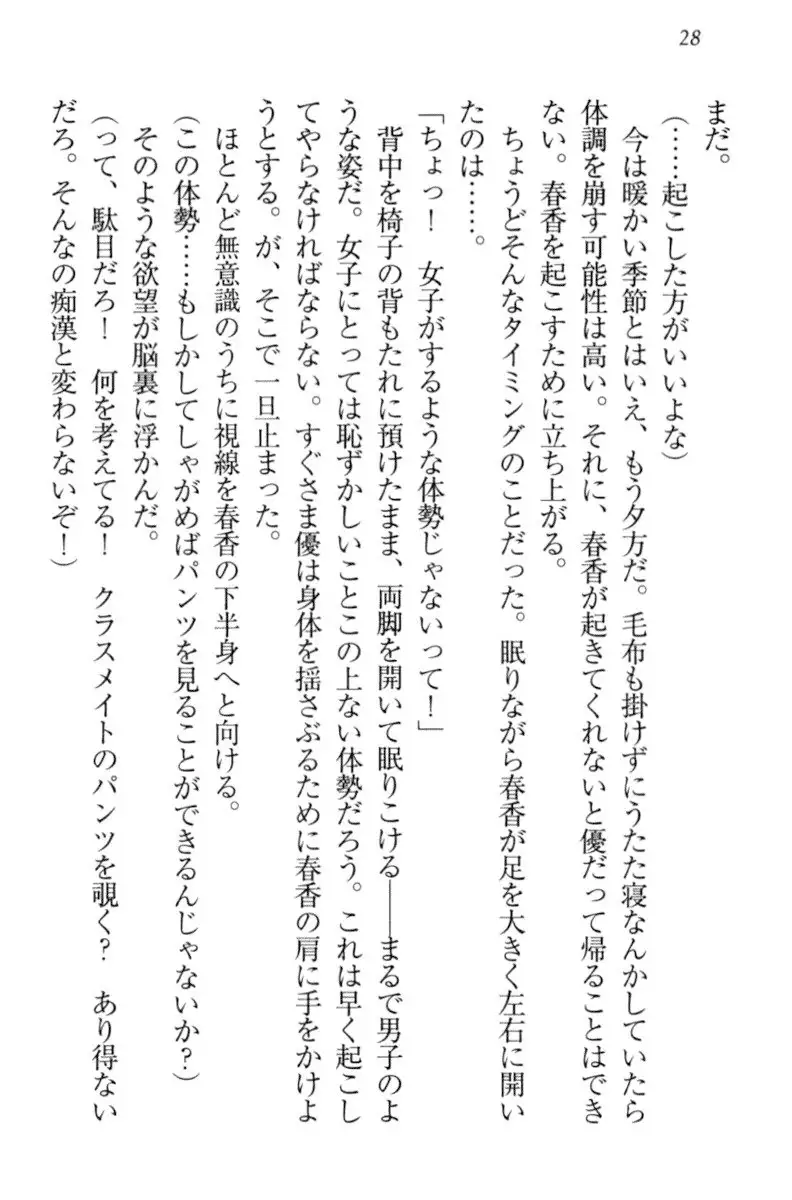 28
まだ。
(……起こした方がいいよな)
今は暖かい季節とはいえ、もう夕方だ。毛布も掛けずにうたた寝なんかしていたら
体調を崩す可能性は高い。それに、春香が起きてくれないと優だって帰ることはでき
ない。春香を起こすために立ち上がる。
ちょうどそんなタイミングのことだった。眠りながら春香が足を大きく左右に開い
たのは……。
「ちょっ！　女子がするような体勢じゃないって！」
背中を椅子の背もたれに預けたまま、両脚を開いて眠りこける――まるで男子のよ
うな姿だ。女子にとっては恥ずかしいことこの上ない体勢だろう。これは早く起こし
てやらなければならない。すぐさま優は身体を揺さぶるために春香の肩に手をかけよ
うとする。が、そこで一旦止まった。
ほとんど無意識のうちに視線を春香の下半身へと向ける。
(この体勢……もしかしてしゃがめばパンツを見ることができるんじゃないか？)
そのような欲望が脳裏に浮かんだ。
(って、駄目だろ！　何を考えてる！　クラスメイトのパンツを覗く？　あり得ない
だろ。そんなの痴漢と変わらないぞ！)